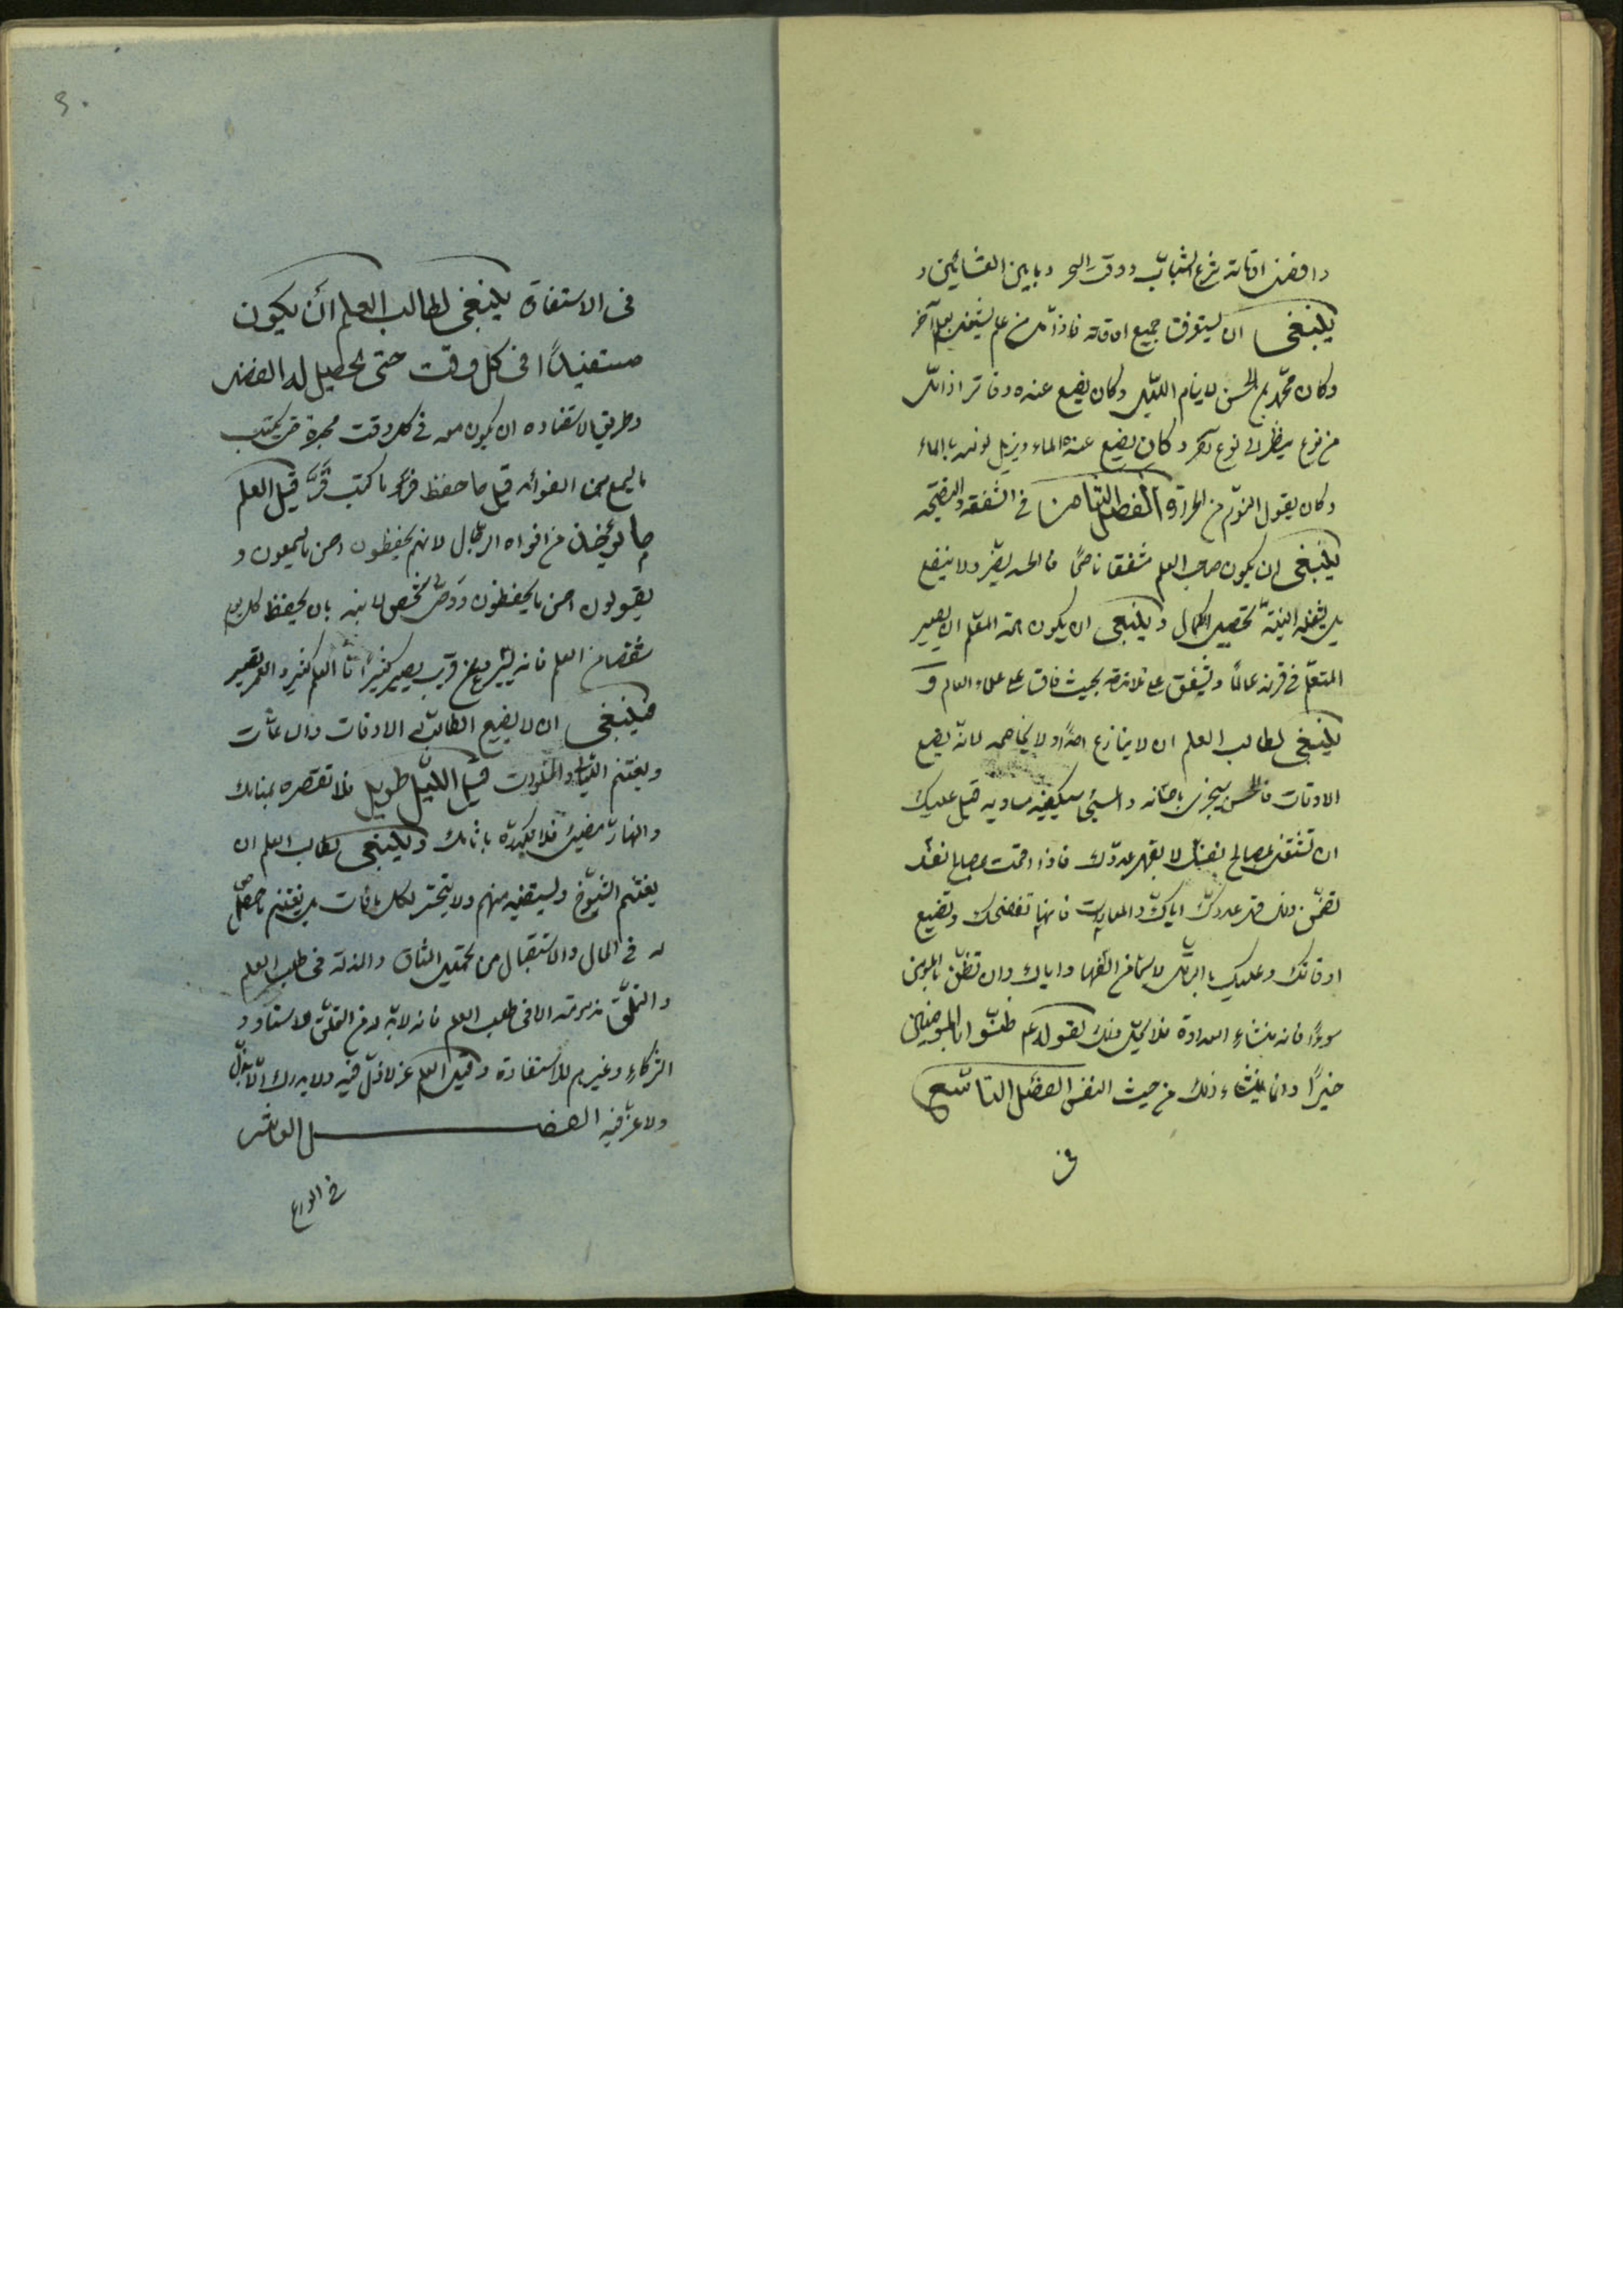 وافضل اوقاته شرع الشباب ووقت السحر وما بين العشائين و
ينبغى ان يستغرق جميع اوقاته فاذا ملّ من علم يشتغل بعلم آخر
وكان محمّد بن الحسن لا ينام الليل وكان يضع عنده دفاتر اذا ملّ
من نوع ينظر الى نوع آخر وكان يضع عنده الماء ويزيل نومه بالماء
وكان يقول النوم من الحرارة الفصل الثامن فى الشفقه والنصيحه
ينبغى ان يكون صاحب العلم مشفقا ناصحًا فالحسد يضرّ ولا ينفع
بل نيّة تحصيل الكمال وينبغى ان يكون همة المعلّم ان يصير
المتعلّم فى قرنه عالمًا ويشفق على تلامذته بحيث فاق على علماء العالم و
ينبغى لطالب العلم ان لا ينازع احدًا ولا يخاصمه لانّه يضيع
الاوقات فالمحسن سيجزى باحسانه والمسيئ سيكفيه مساويه قيل عليك
ان تشتغل بمصالح نفسك لا بقهر عدوّك فاذا اقمت مصالح نفسك
تضمّن ذلك قهر عدوك ايّاك والمعادات فانها تفضحك وتضيع
اوقاتك وعليك بالتحمّل لا سيما من السّفهاء واياك وان تظنّ بالمومن
سوءًا فانه منشاء العداوة فلا يحلّ ذلك لقوله عم ظنّوا بالمومنين
خيرًا وانما ينشاء ذلك من خبث النفس الفصل التاسع
فى
٩٠
فى الاستفادة ينبغى لطالب العلم ان يكون
مستفيدًا فى كل وقت حتى يحصل له الفضل
وطريق الاستفاده ان يكون معه فى كل وقت محبرة حتى يكتب
ما يسمع من الفوائد قيل ما حفظ فرّ وما كتب قرّ قيل العلم
ما يؤخذ من افواه الرجال لانهم يحفظون احسن ما يسمعون و
يقولون احسن ما يحفظون ووصّى شخص لابنه بان يحفظ كل يوم
شقصا من العلم فانه يسير وعن قريب يصير كثيرًا فان العلم كثير والعمر قصير
فينبغى ان لا يضيع الطالب الاوقات والساعات
ويغتنم الليالى والخلوات قيل الليل طويل فلا تقصره بمنامك
والنهار مضيئ فلا تكدره باثامك وينبغى لطالب العلم ان
يغتنم الشيوخ ويستفيد منهم ولا يتحسّر لكل ما فات بل يغتنم ما حصل
له فى الحال والاستقبال من تحمّل المشاق والمذلة فى طلب العلم
والتملّق مذموم الا فى طلب العلم فانه لابدّ له من التملّق للاستاد و
الشركاء وغيرهم للاستفادة وقيل العلم عز لا ذلّ فيه ولا يدرك الّا بذلّ
لا عزّ فيه الفصــــــل العاشر
فى الورع